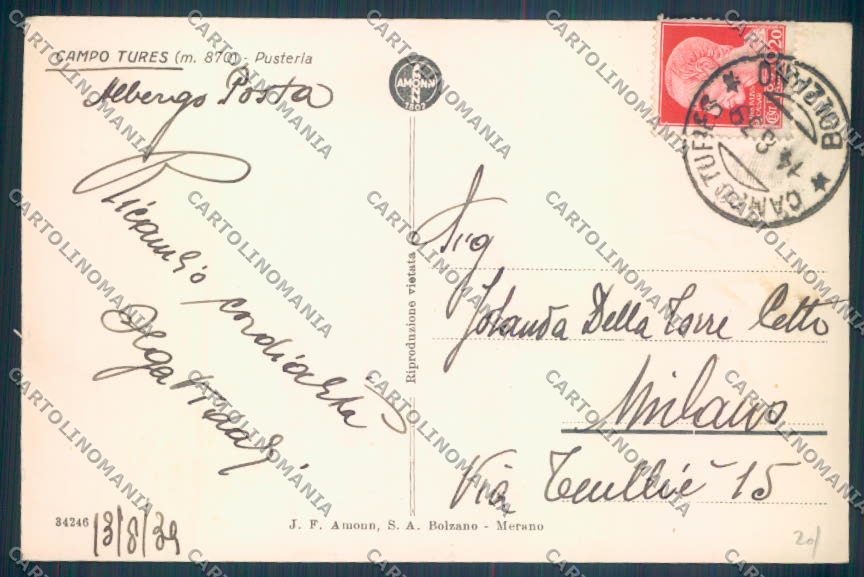 CAMPO TURES (m. 870) - Pusteria
Albergo Posta
Ricambio cordialità
Olga
13/8/39
34246
J. F. Amonn, S. A. Bolzano - Merano
Riproduzione vietata
AMONN
1802
20
CENT
CAMPO TURES
BOLZANO
14
Sig
Jolanda Della Torre Cetto
Milano
Via Tcullié 15
20/
CARTOLINOMANIA